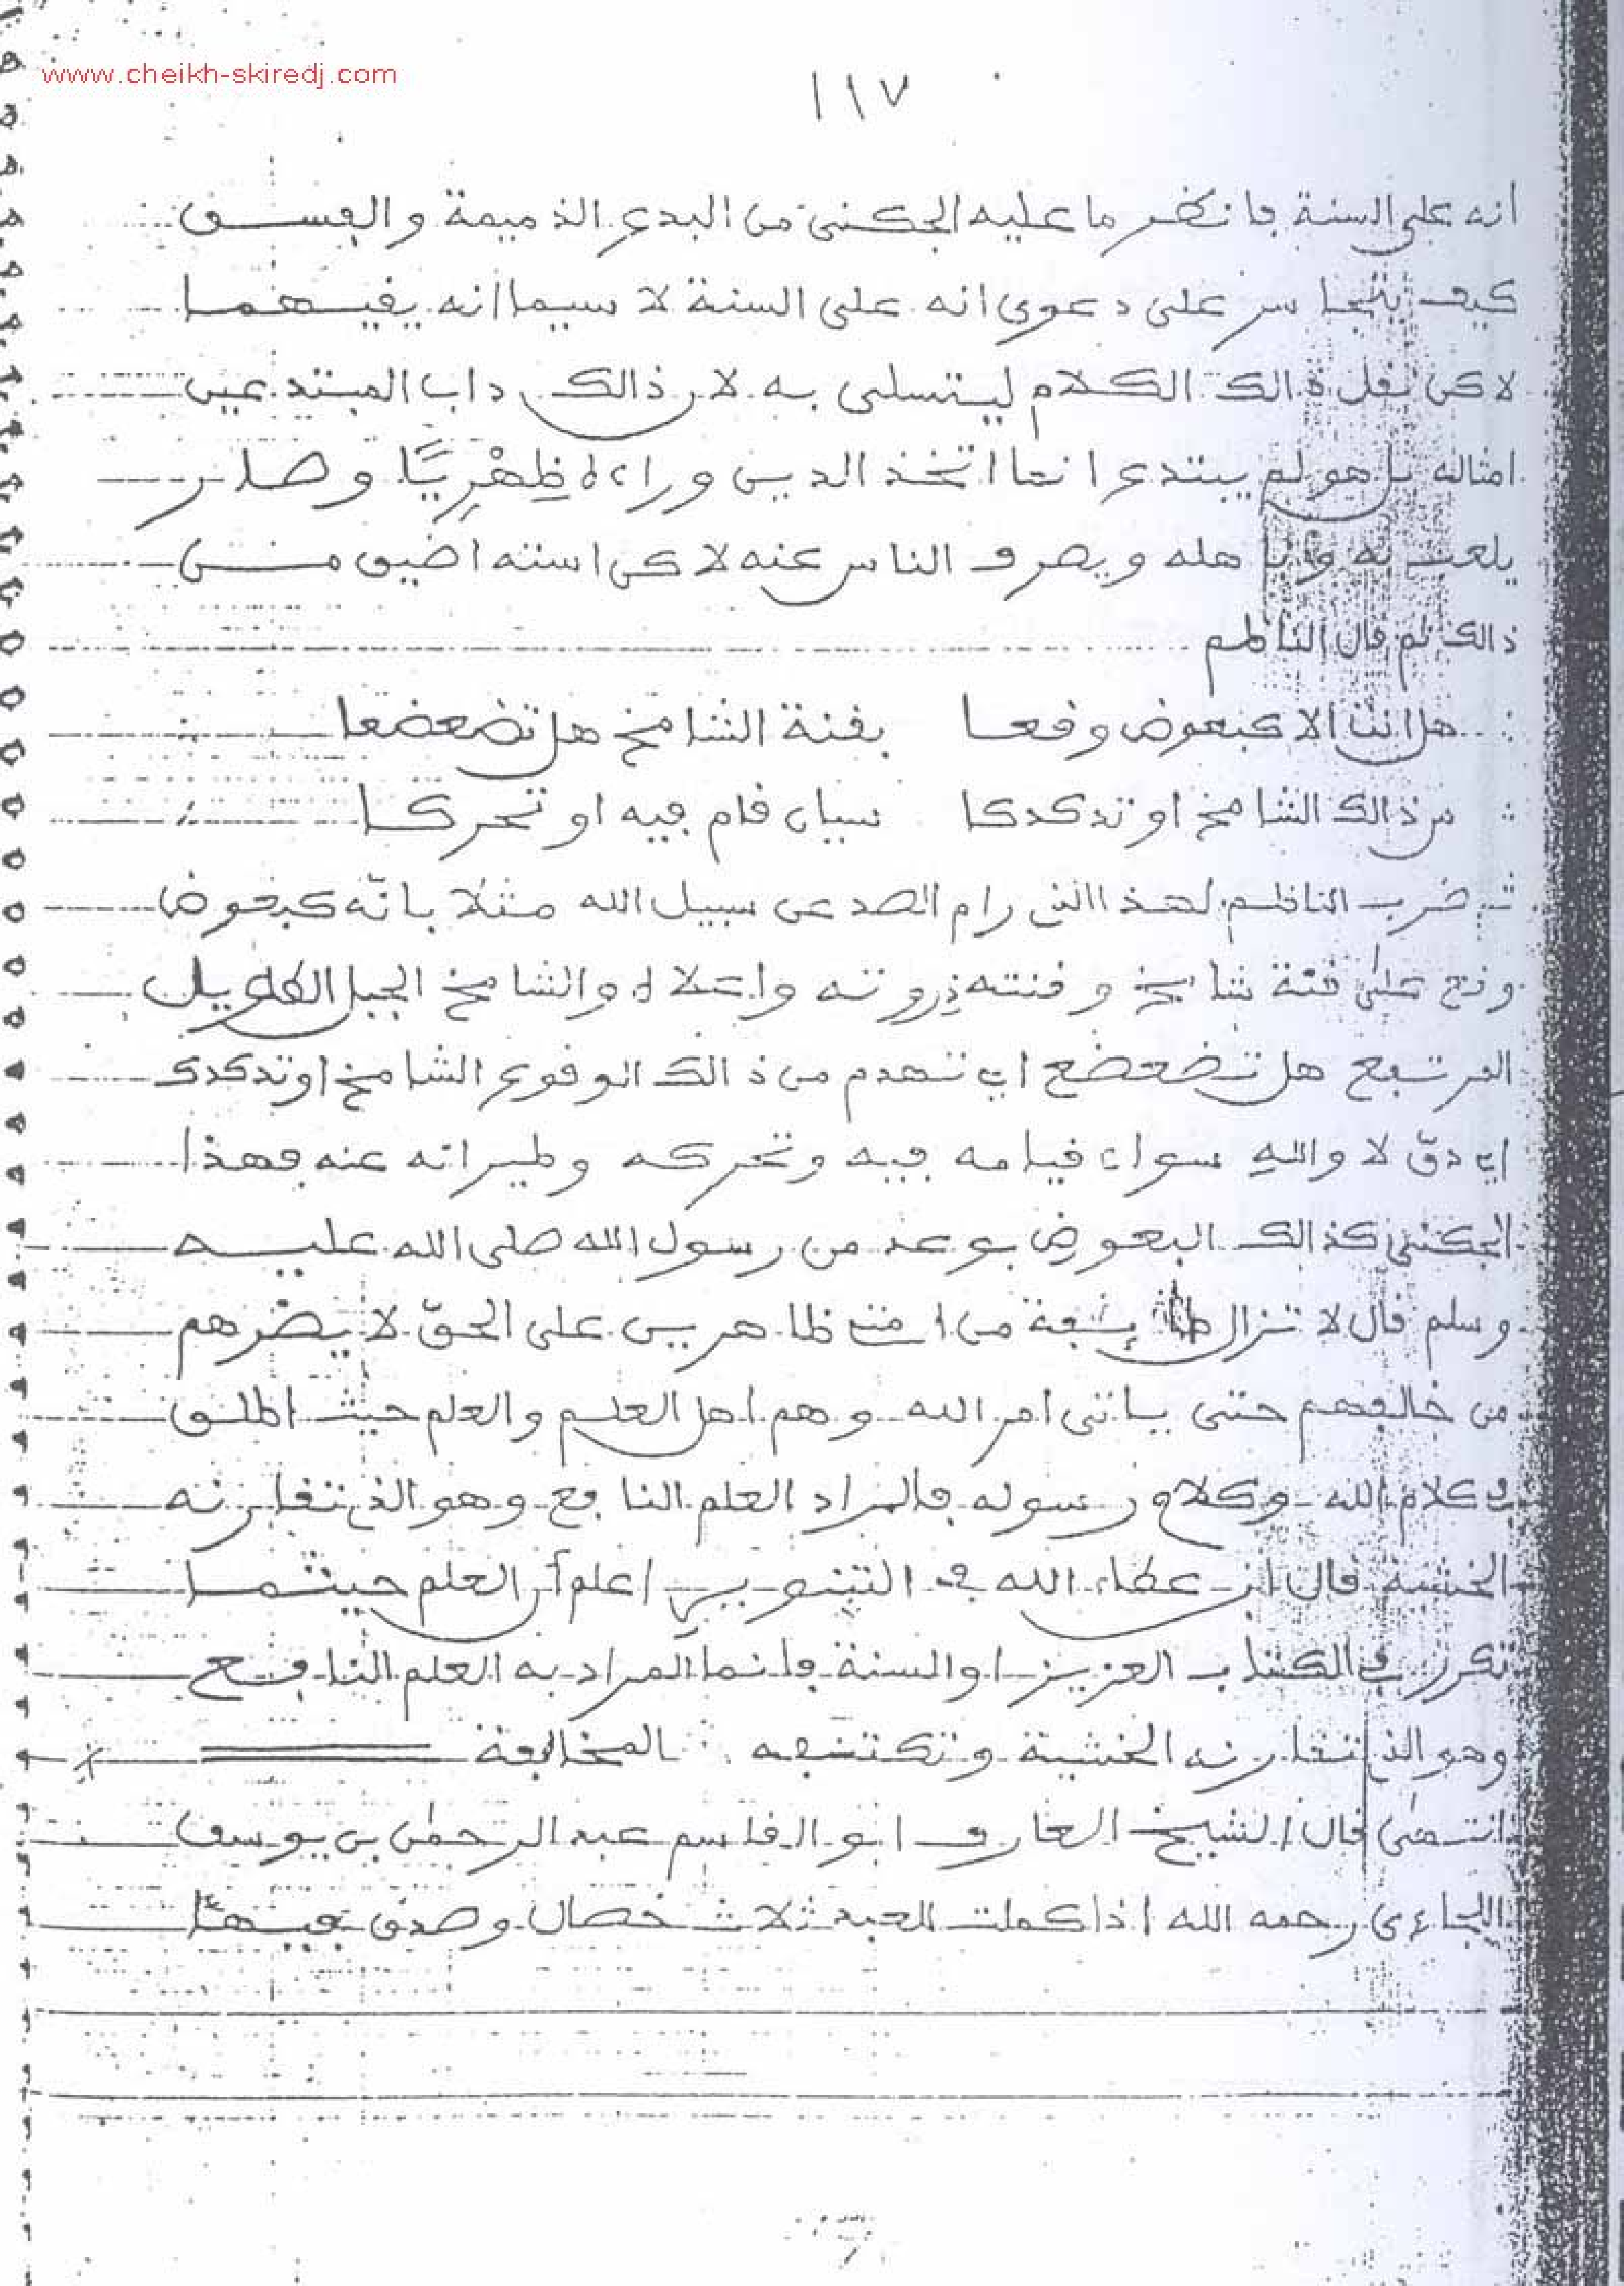 www.cheikh-skiredj.com
١١٧
انه على السنة فانظر ما عليه الجكني من البدع الذميمة والفسق
كيف يتجاسر على دعوى انه على السنة لا سيما انه
لاكن نقل ذالك الكلام ليتسلى به لان ذالك داب المبتدعين
امثاله بل هو لم يبتدع انما اتخذ الدين وراءه ظِهْرِيًّا وصار
يلعب به وباهله ويصرف الناس عنه لاكن استه اضيق من
ذالك ثم قال الناظم
هل انت الا كبعوض وقعا بقنة الشامخ هل تضعضعا
من ذالك الشامخ او تدكدكا سيان قام فيه او تحركا
ضرب الناظم لهذا الذي رام الصد عن سبيل الله مثلا بانّه كبعوض
وقع على قنة شامخ وقنته ذروته واعلاه والشامخ الجبل الطويل
المرتفع هل تضعضع اي تهدم من ذالك الوقوع الشامخ او تدكدك
اي دقّ لا والله سواء قيامه فيه وتحركه وطيرانه عنه فهذا
الجكني كذالك البعوض بوعد من رسول الله صلى الله عليه
وسلم قال لا تزال طائفة من امتي ظاهرين على الحقّ لا يضرّهم
من خالفهم حتى ياتي امر الله وهم اهل العلم والعلم حيث اطلق
في كلام الله وكلام رسوله فالمراد العلم النافع وهو الذي تقارنه
الخشية قال ابن عطاء الله في التنوير اعلم أن العلم حيثما
تكرر في الكتاب العزيز او السنة فانما المراد به العلم النافع
وهو الذي تقارنه الخشية وتكتنفه المخافة
انتهى قال الشيخ العارف ابو القاسم عبد الرحمن بن يوسف
اللجاءي رحمه الله اذا كملت للعبد ثلاث خصال وصدق فيها